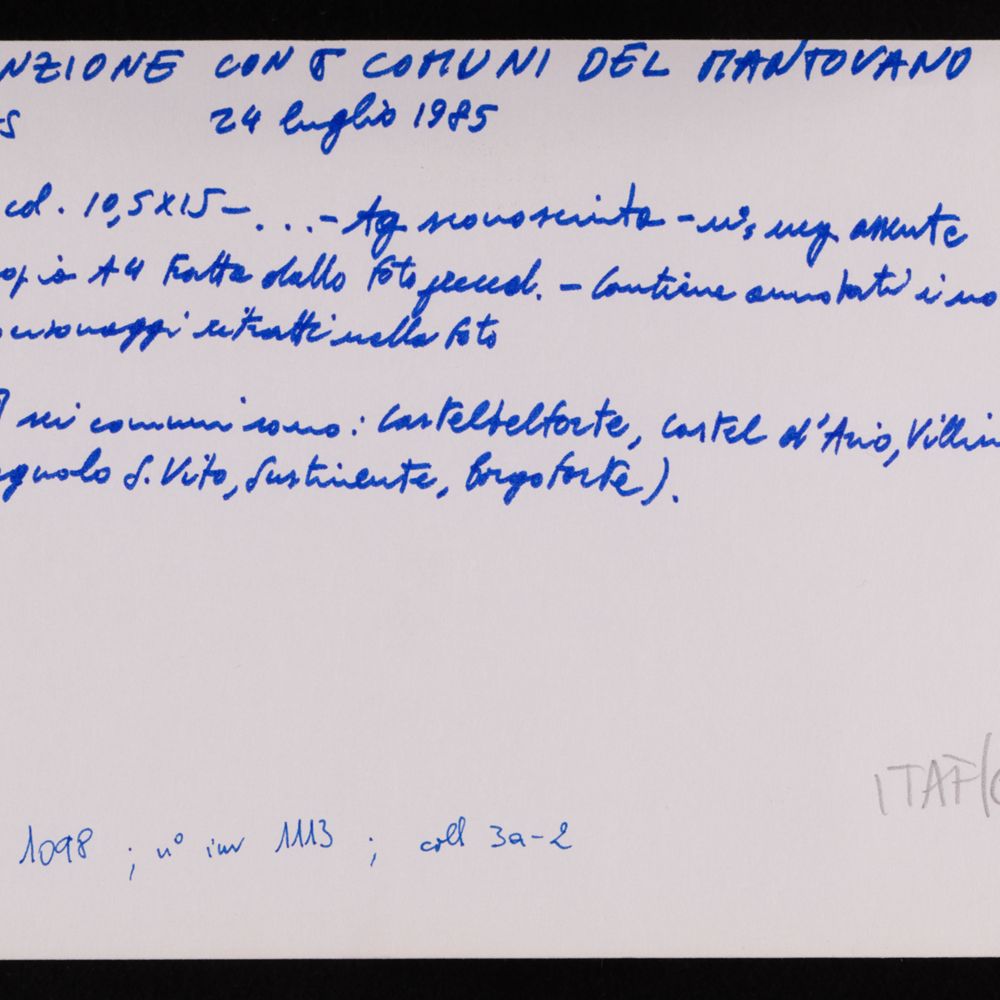 NZIONE CON 6 COMUNI DEL MANTOVANO
24 luglio 1985
col. 10,5x15 - ... - Ag sconosciuta - n°, neg assente
opia A4 tratta dalla foto preced. - Contiene annotati i no
ersonaggi ritratti nella foto
I sei comuni sono: Castelbelforte, Castel d'Ario, Villim
agnolo S. Vito, Sustinente, Borgoforte).
ITAF/
1098 ; n° inv 1113 ; coll 3a-2